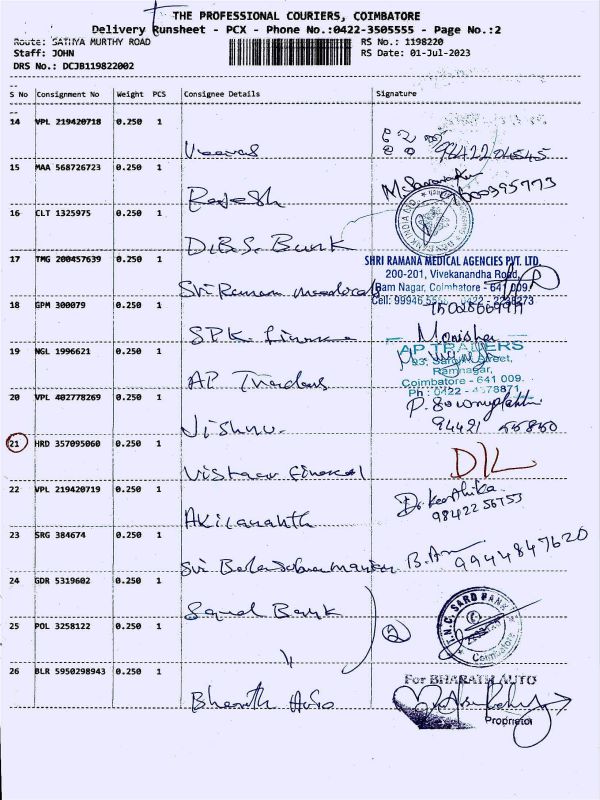 THE PROFESSIONAL COURIERS, COIMBATORE
Delivery Runsheet - PCX - Phone No.:0422-3505555 - Page No.:2
Route: SATHYA MURTHY ROAD
RS No.: 1198220
Staff: JOHN
RS Date: 01-Jul-2023
DRS No.: DCJB119822002
S No Consignment No Weight PCS Consignee Details Signature
14 VPL 219420718 0.250 1
15 MAA 568726723 0.250 1
Rajesh
16 CLT 1325975 0.250 1
D.B.S. Bank
17 TMG 200457639 0.250 1
SHRI RAMANA MEDICAL AGENCIES PVT. LTD.
200-201, Vivekanandha Road,
Ram Nagar, Coimbatore - 641 009.
Sri Raman
18 GPM 300079 0.250 1
SPK finance Monisha
19 NGL 1996621 0.250 1
AP TRADERS
Street,
Ramnagar,
Coimbatore - 641 009.
AP Traders
20 VPL 402778269 0.250 1
Jishnu. 94421 55850
21 HRD 357095060 0.250 1
D/L
Vistaar financial
22 VPL 219420719 0.250 1
Dr. Keerthika
98422 56753
Akilananth
23 SRG 384674 0.250 1
9944847620
Sri Balasubramaniam
24 GDR 5319602 0.250 1
Bank
25 POL 3258122 0.250 1
2
Coimbatore
26 BLR 5950298943 0.250 1
For BHARATH AUTO
Bharath Auto
Proprietor